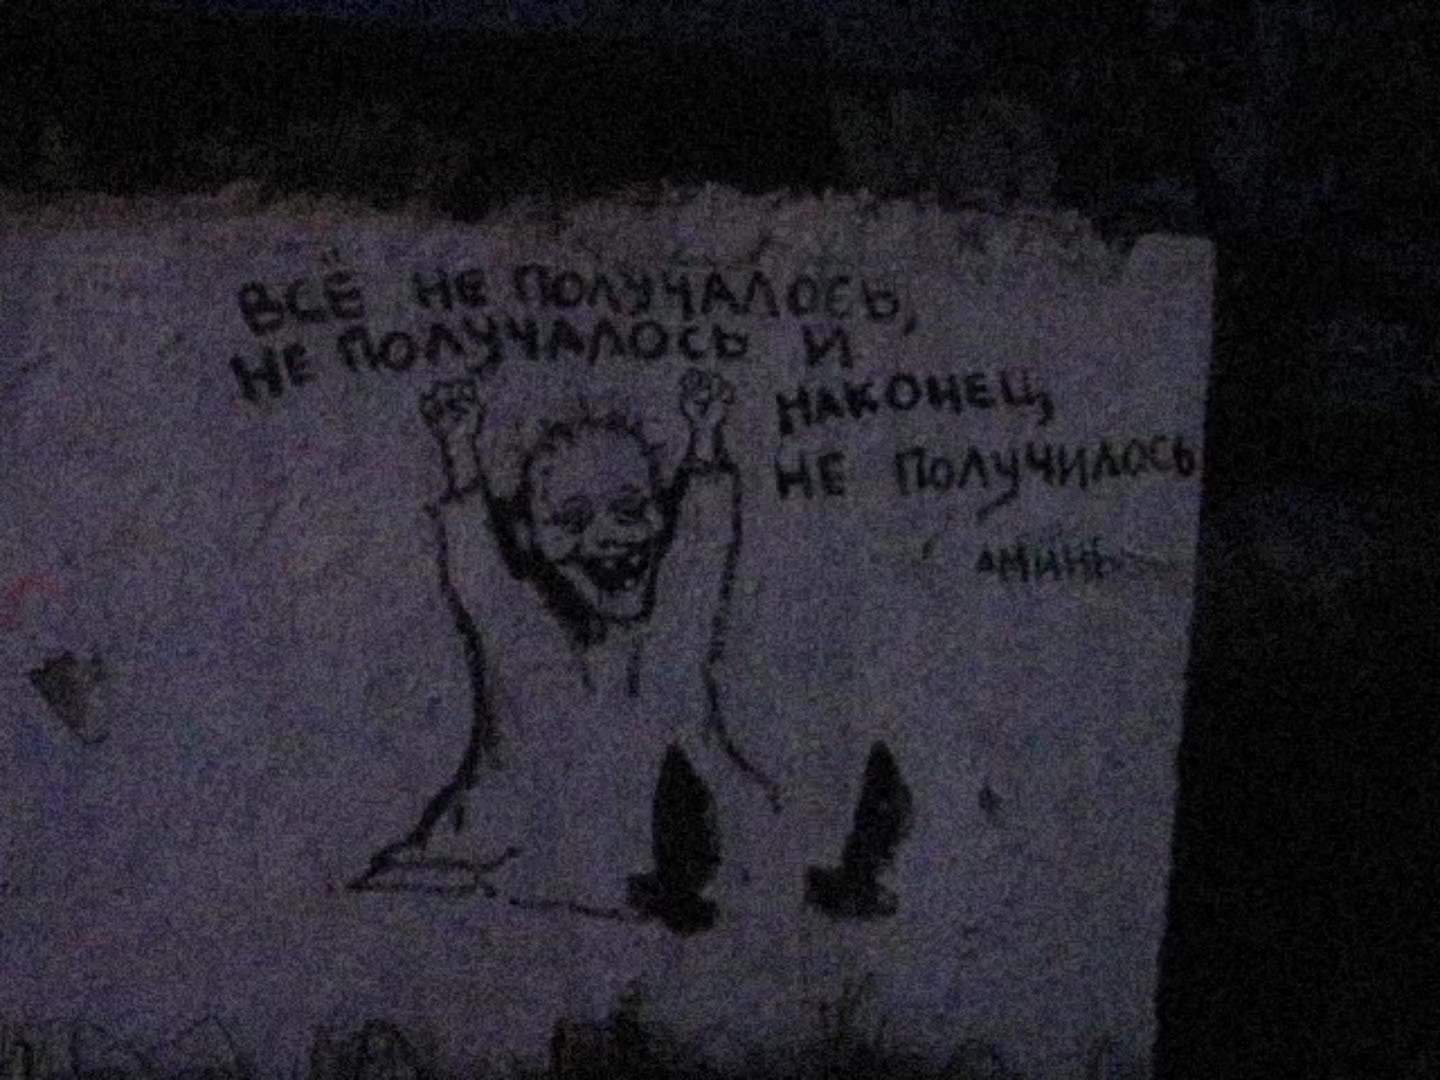 ВСЁ НЕ ПОЛУЧАЛОСЬ,
НЕ ПОЛУЧАЛОСЬ И
НАКОНЕЦ,
НЕ ПОЛУЧИЛОСЬ
АМИНЬ